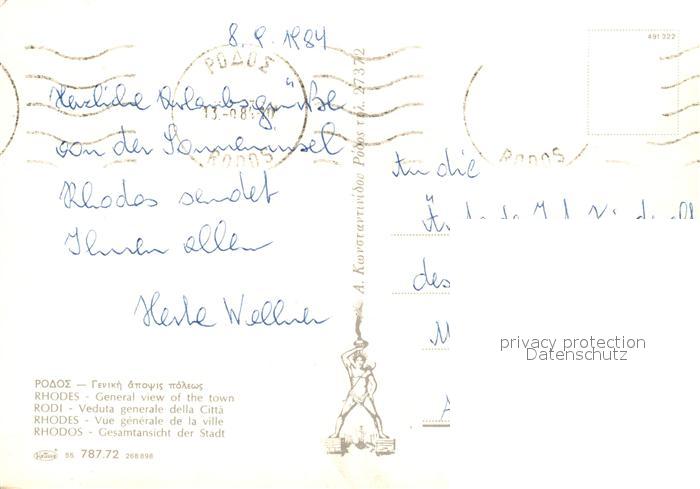 8. 9. 1984
ΡΟΔΟΣ
RODOS
Herzliche Urlaubsgrüße
von der Sonneninsel
Rhodos sendet
Ihnen allen
Herta Wellner
ΡΟΔΟΣ — Γενική άποψις πόλεως
RHODES - General view of the town
RODI - Veduta generale della Città
RHODES - Vue générale de la ville
RHODOS - Gesamtansicht der Stadt
55 787.72 268898
Α. Κωνσταντινίδου Ρόδος τηλ. 27372
491 322
RODOS
An die
des
privacy protection
Datenschutz